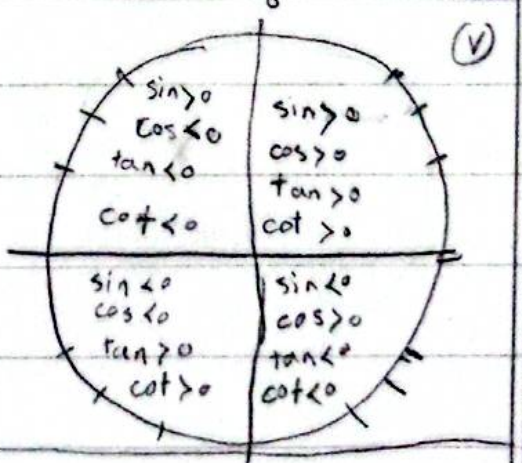 (V)
sin>0
cos<0
tan<0
cot<0
sin>0
cos>0
tan>0
cot >0
sin<0
cos<0
tan>0
cot>0
sin<0
cos>0
tan<0
cot<0